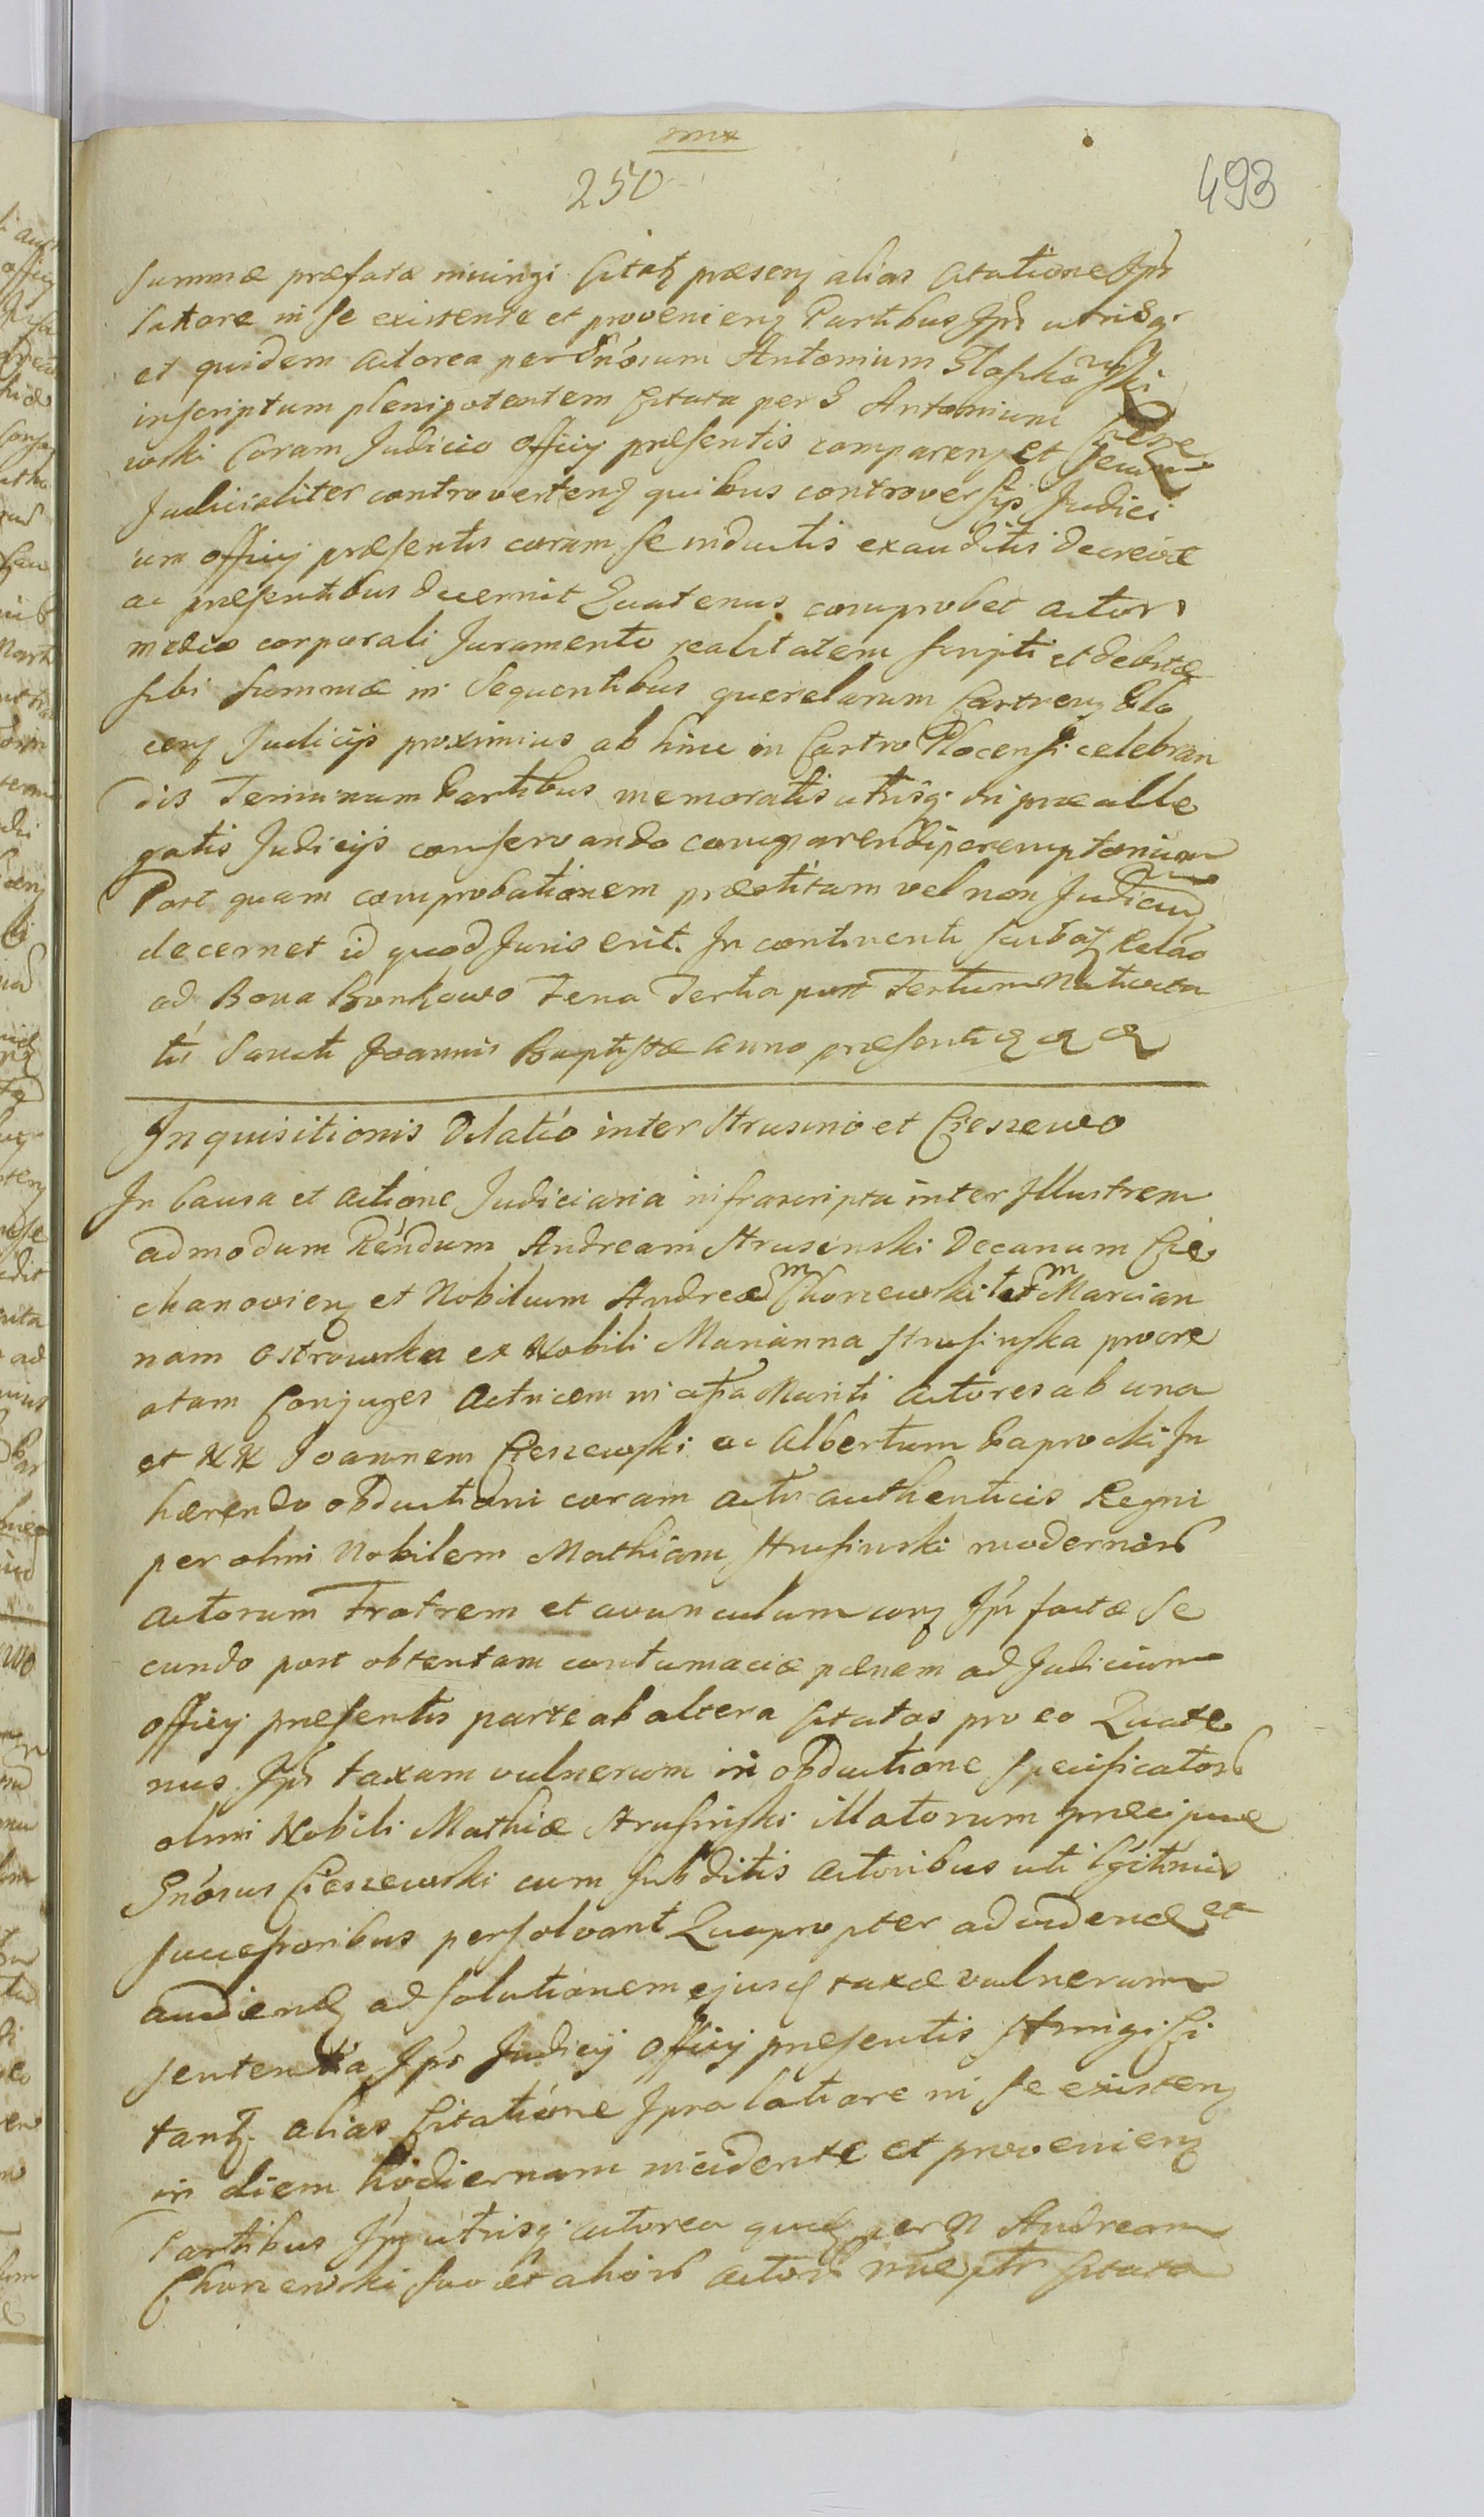 250
493
summæ præfatæ iniungi Citatꝫ præsenꝫ alias Citatione Ipsâ
latiore in se existente et provenienꝫ Partibus Ipsis utrisqꝫ
et quidem actorea per Gnósum Antonium
inscriptum plenipotentem Citata per G Antonium Ciesze
wski Coram Judicio Officij præsentis comparenꝫ et secum
Judicialiter controvertenꝫ quibus controversijs Judici
um officij præsentis coram se inductis exauditis decrevit
ac præsentibus decernit Quatenus comprobet actor
medio corporali Juramento realitatem scripti et debitæ
sibi summæ in Sequentibus querelarum Castrenꝫ Plo
cenꝫ Judicijs proximius ab hinc in Castro Plocensi celebran
dis Terminum Partibus memoratis utrisqꝫ in præalle
gatis Judicijs conservando comparendi peremptorium
Post quam comprobationem præstitam vel non Judicium
decernet id quod Juris erit. In continenti scribatꝫ Relao
ad Bona Bonkowo Feria Tertia post Festum Nativita
tis Sancti Joannis Baptistæ anno præsenti
Inquisitionis Dilatio inter Strusino et Cieszewo
In Causa et actione Judiciaria infrascripta inter Illustrem
admodum Rendum Andream Strusinski Decanum Cie
chanovienꝫ et Nobilium Andreæm Chorzewski et Marcian
nam Ostrowska ex Nobili Marianna Strusinska procre
atam Conjuges Actricem in assa Mariti Actores ab una
et NN Joannem Cieszewski ac Albertum Paprocki In
hærendo obductioni coram actis authenticis Regni
per olim Nobilem Mathiam Strusinski modernorum
actorum Fratrem et avunculum conꝫ Ipsos factæ Se
cundo post obtentam contumaciæ pænam ad Judicium
officij præsentis parte ab altera Citatos pro eo Quate
nus Ipsi taxam vulnerum in obductione specificatorum
olim Nobili Mathiæ Strusinski illatorum præcipue
Gnósus Cieszewski cum subditis actoribus uti lgitimis
successoribus persolvant Quapropter ad videnꝫ et
audienꝫ ad solutionem ejusꝫ taxæ vulnerum
sententia Ipsos Judicij Officij præsentis Stringi Ci
tantꝫ alias Citatione Ipsa latiore in se existenꝫ
in diem hodiernam incidente et provenienꝫ
Partibus Ipsis utrisqꝫ actorea quidꝫ per N Andream
Chorzewski suo et aliorum actorum nne ptr Citata